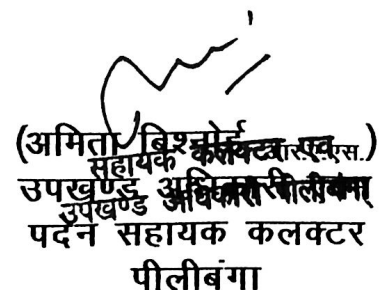 (अमिता बिश्नोई आर.ए.एस.)
सहायक कलक्टर एवं
उपखण्ड अधिकारी
उपखण्ड अधिकारी पीलीबंगा
पदेन सहायक कलक्टर
पीलीबंगा